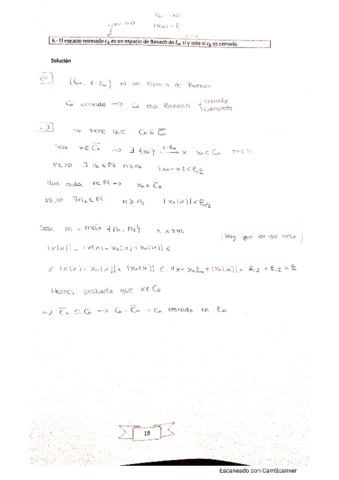 Xn → 0
6.- El espacio normado c₀ es un espacio de Banach de l∞ si y solo si c₀ es cerrado.
Solución
(C₀, ‖·‖∞) es un espacio de Banach
C₀ cerrado → C₀ esp Banach { cerrado
completo
Se tiene que C₀ ⊆ C̄₀
Sea x∈C̄₀ ⇒ ∃ {xₙ} → x xₙ∈C₀
∀ε>0 ∃ n₁∈ℕ n≥n₁ ‖xₙ-x‖<ε/2
n∈ℕ → xₙ∈C₀
∀ε>0 ∃n₂∈ℕ n≥n₂ |xₙ(n)|<ε/2
Sea m = máx {n₁, n₂} n≥m
(Hay que ver que x∈C₀)
|x(n)| = |x(n) - xₙ(n) + xₙ(n)| ≤
≤ |x(n) - xₙ(n)| + |xₙ(n)| ≤ ‖x - xₙ‖∞ + |xₙ(n)| = ε/2 + ε/2 = ε
Hemos probado que x∈C₀
⇒ C̄₀ ⊆ C₀ ⇒ C₀ = C̄₀ → C₀ cerrado en l∞
18
Escaneado con CamScanner